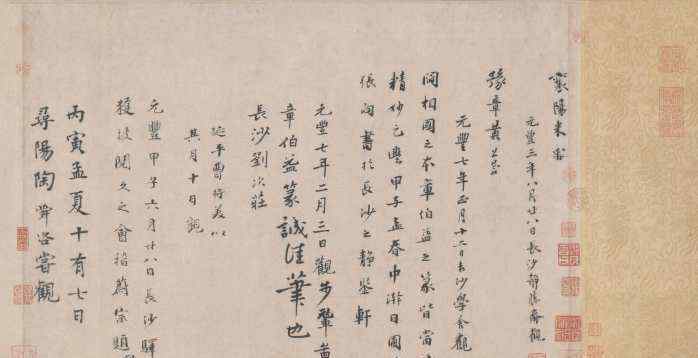 襄陽米芾
元豐三年八月廿八日長沙靜勝齋觀
豫章黃
元豐七年正月十二日長沙學舍觀
閻相國之本章伯益之篆皆當
精妙已豐甲子孟春中澣日圖
張洵書於長沙之靜鑒軒
元豐七年二月三日觀步輦
章伯益篆誠佳筆也
長沙劉次莊
延平曹將美以
其月十日觀
元豐甲子六月廿八日長沙驛
獲披閱久之會稽蔚宗題
丙寅孟夏十有七日
尋陽陶舜咨嘗觀